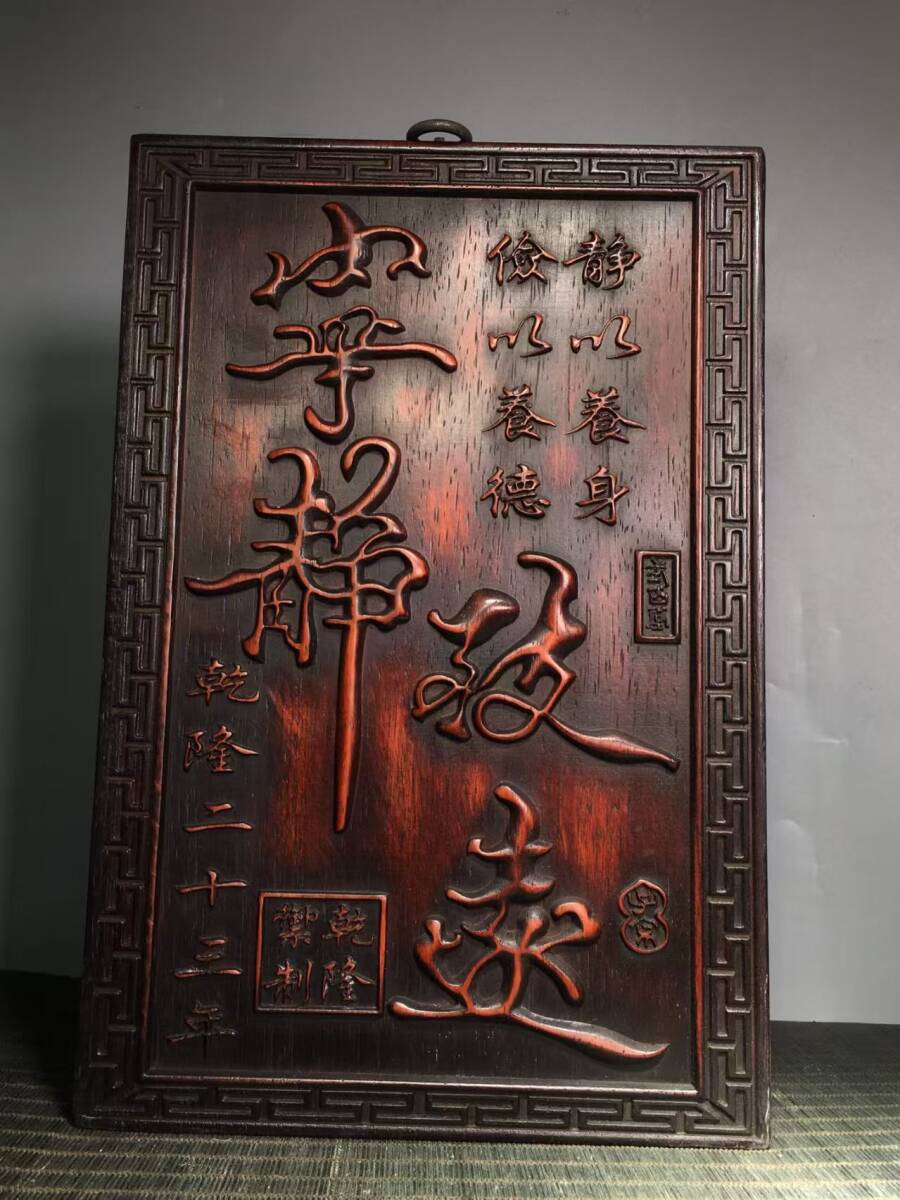 静以養身
儉以養德
寧靜
致遠
乾隆二十三年
乾隆
禦制